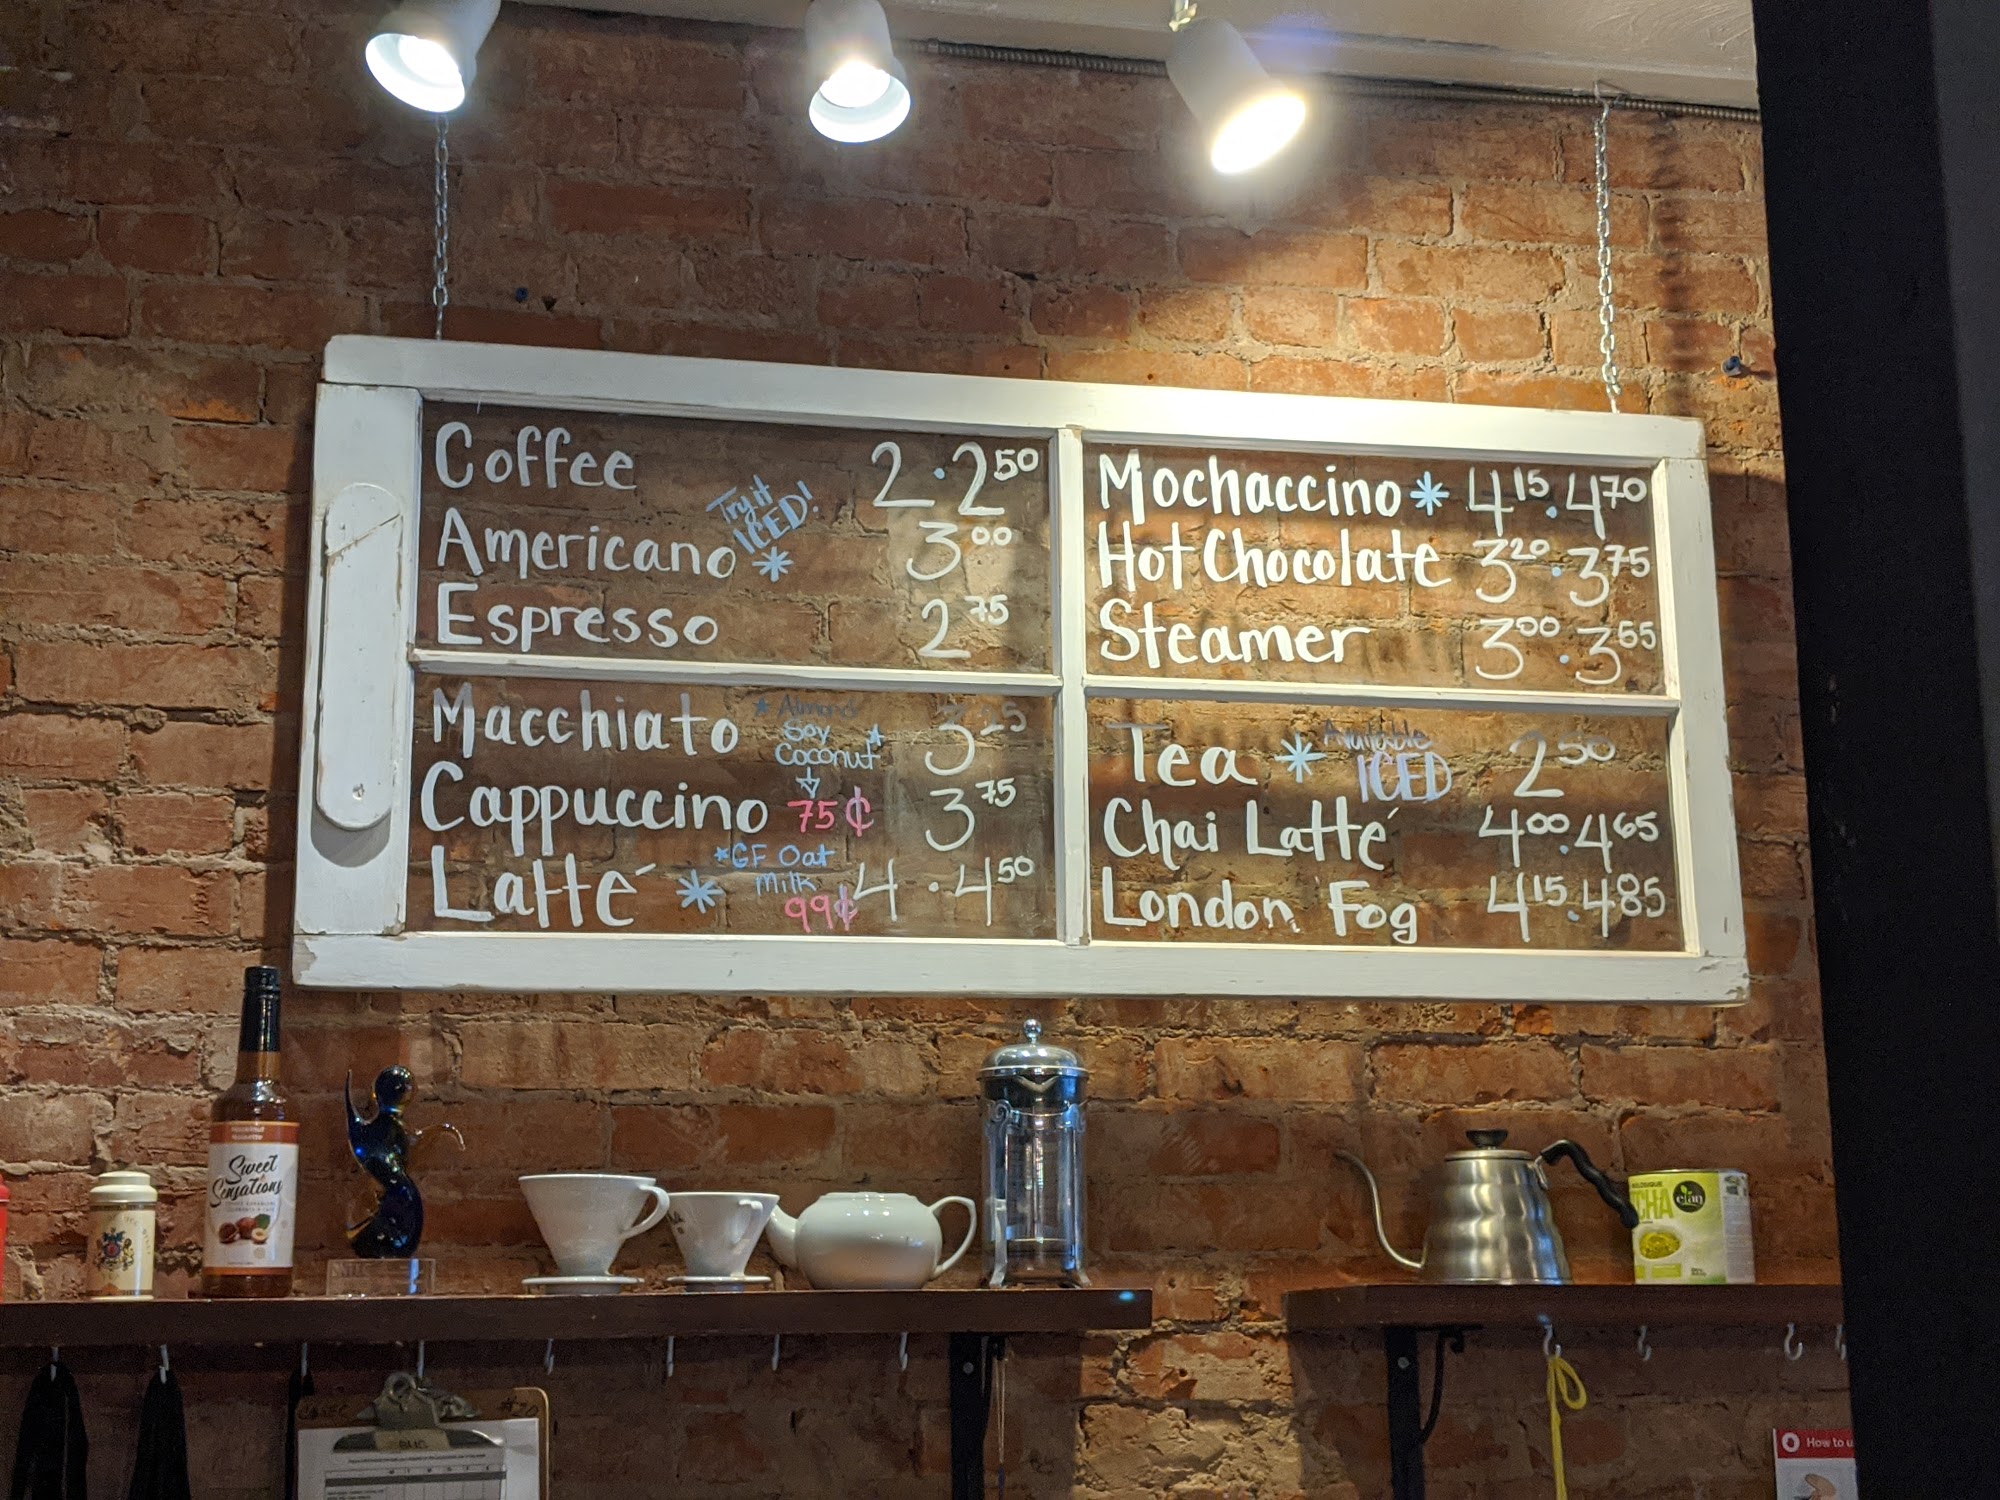 Coffee 2 · 2 50
Try it
ICED!
Americano * 3 00
Espresso 2 75
Macchiato 3 25
* Almond
Soy *
Coconut
75¢
Cappuccino 3 75
*GF Oat
Milk
99¢
Latté * 4 · 4 50
Mochaccino * 4 15 · 4 70
Hot Chocolate 3 20 · 3 75
Steamer 3 00 · 3 55
Tea * Available 2 50
ICED
Chai Latté 4 00 · 4 65
London Fog 4 15 · 4 85
Sweet
Sensations
CHA
élan
How to u